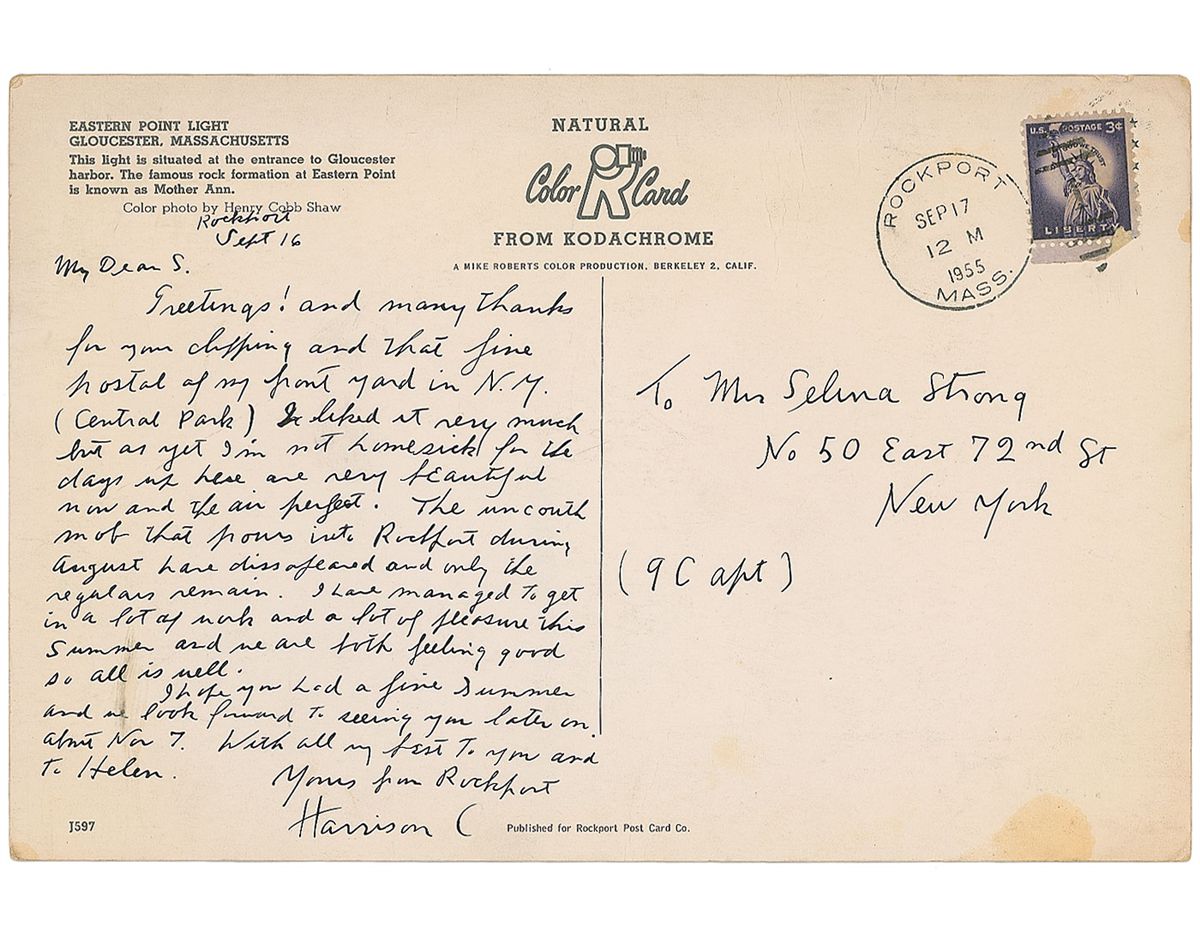 EASTERN POINT LIGHT
GLOUCESTER, MASSACHUSETTS
This light is situated at the entrance to Gloucester
harbor. The famous rock formation at Eastern Point
is known as Mother Ann.
Color photo by Henry Cobb Shaw
NATURAL
Color R Card
FROM KODACHROME
A MIKE ROBERTS COLOR PRODUCTION, BERKELEY 2, CALIF.
ROCKPORT
SEP 17
12 M
1955
MASS.
U.S. POSTAGE 3¢
IN GOD WE TRUST
LIBERTY
Rockport
Sept 16
My Dear S.
Greetings! and many thanks
for your clipping and that fine
postal of my front yard in N.Y.
(Central Park) I liked it very much
but as yet I'm not homesick for the
days up here are very beautiful
now and the air perfect. The uncouth
mob that pours into Rockport during
August have dissapeared and only the
regulars remain. I have managed to get
in a lot of work and a lot of pleasure this
Summer and we are both feeling good
so all is well.
I hope you had a fine Summer
and we look forward to seeing you later on.
about Nov 7. With all my best to you and
to Helen.
Yours from Rockport
Harrison C
To Mrs Selina Strong
No 50 East 72nd St
New York
(9C apt)
J597
Published for Rockport Post Card Co.